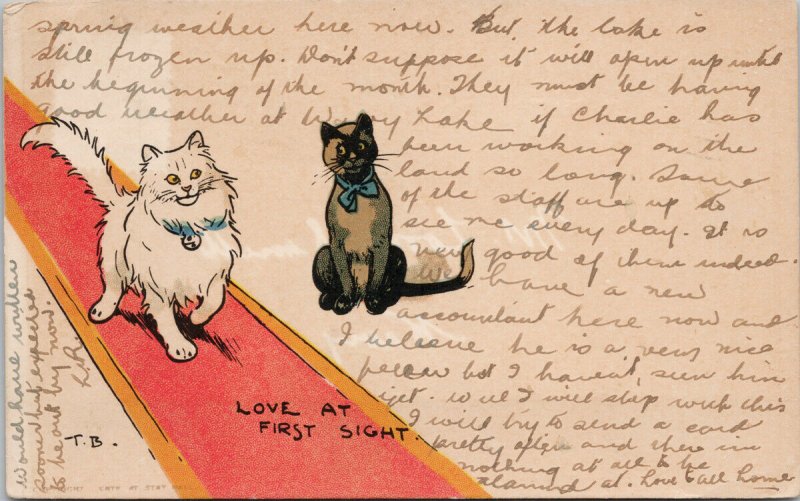 spring weather here now. But, the lake is
still frozen up. Don't suppose it will open up until
the beginning of the month. They must be having
good weather at Lake if Charlie has
been working on the
land so long. Some
of the staff are up to
see me every day. It is
very good of them indeed.
We have a new
accountant here now and
I believe he is a very nice
but I havent, seen him
yet. Well I will stop with this
I will try to send a card
pretty often and there in
nothing at all to be
alarmed at. Love to all home
would have written
sooner but expected
to be out by now.
LOVE AT
FIRST SIGHT.
T.B.